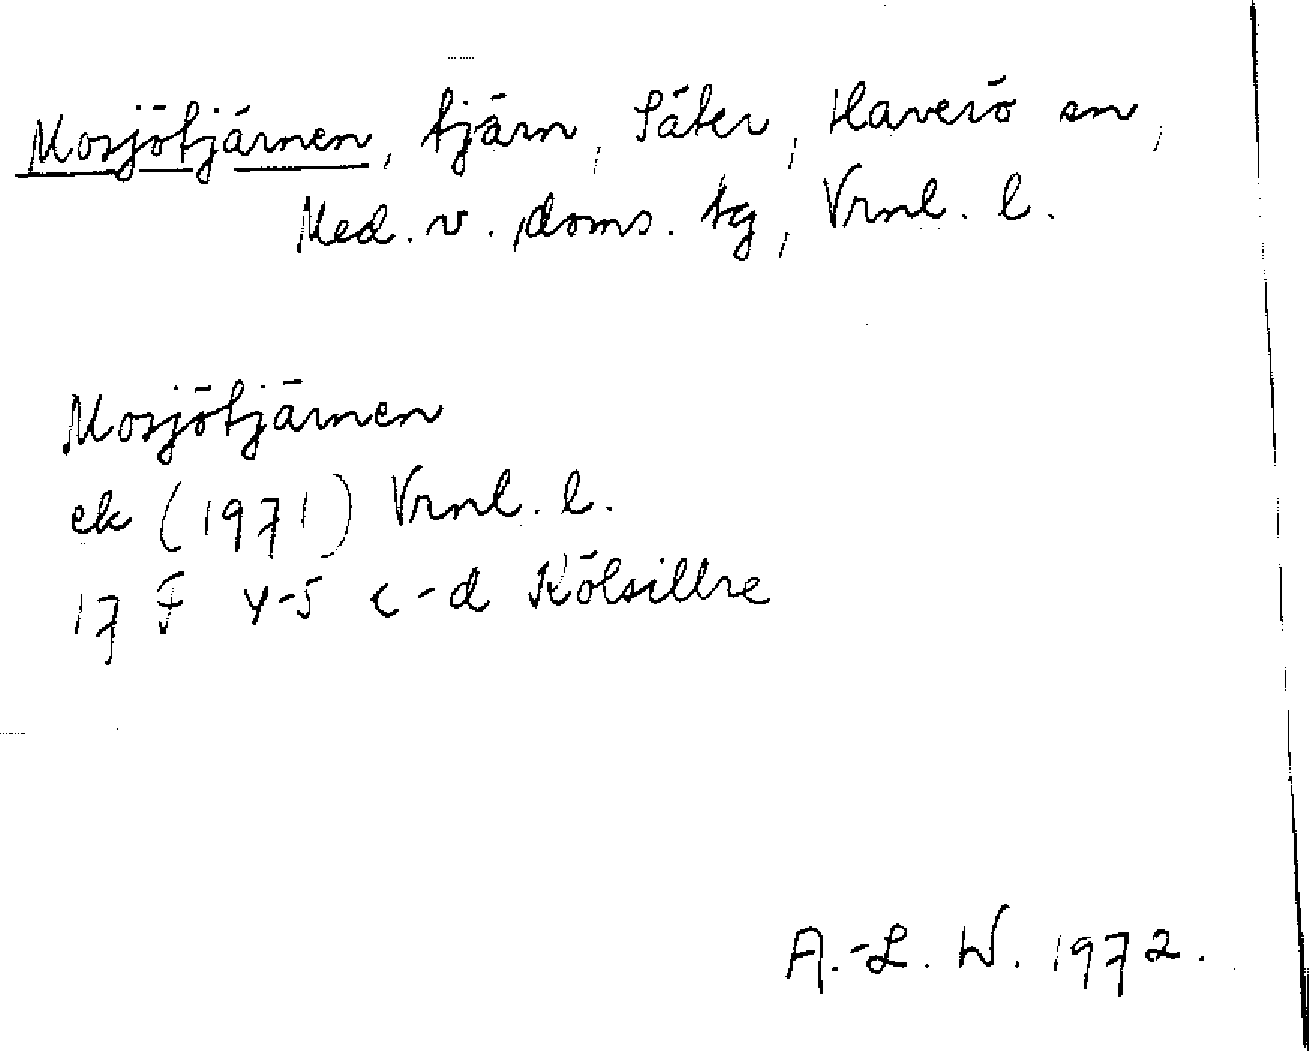 Mosjötjärnen, tjärn, Säter, Haverö sn,
Med. v. doms. tg, Vrnl. l.
Mosjötjärnen
ek (1971) Vrnl. l.
17 F 4-5 c-d Kölsillre
A.-L. W. 1972.